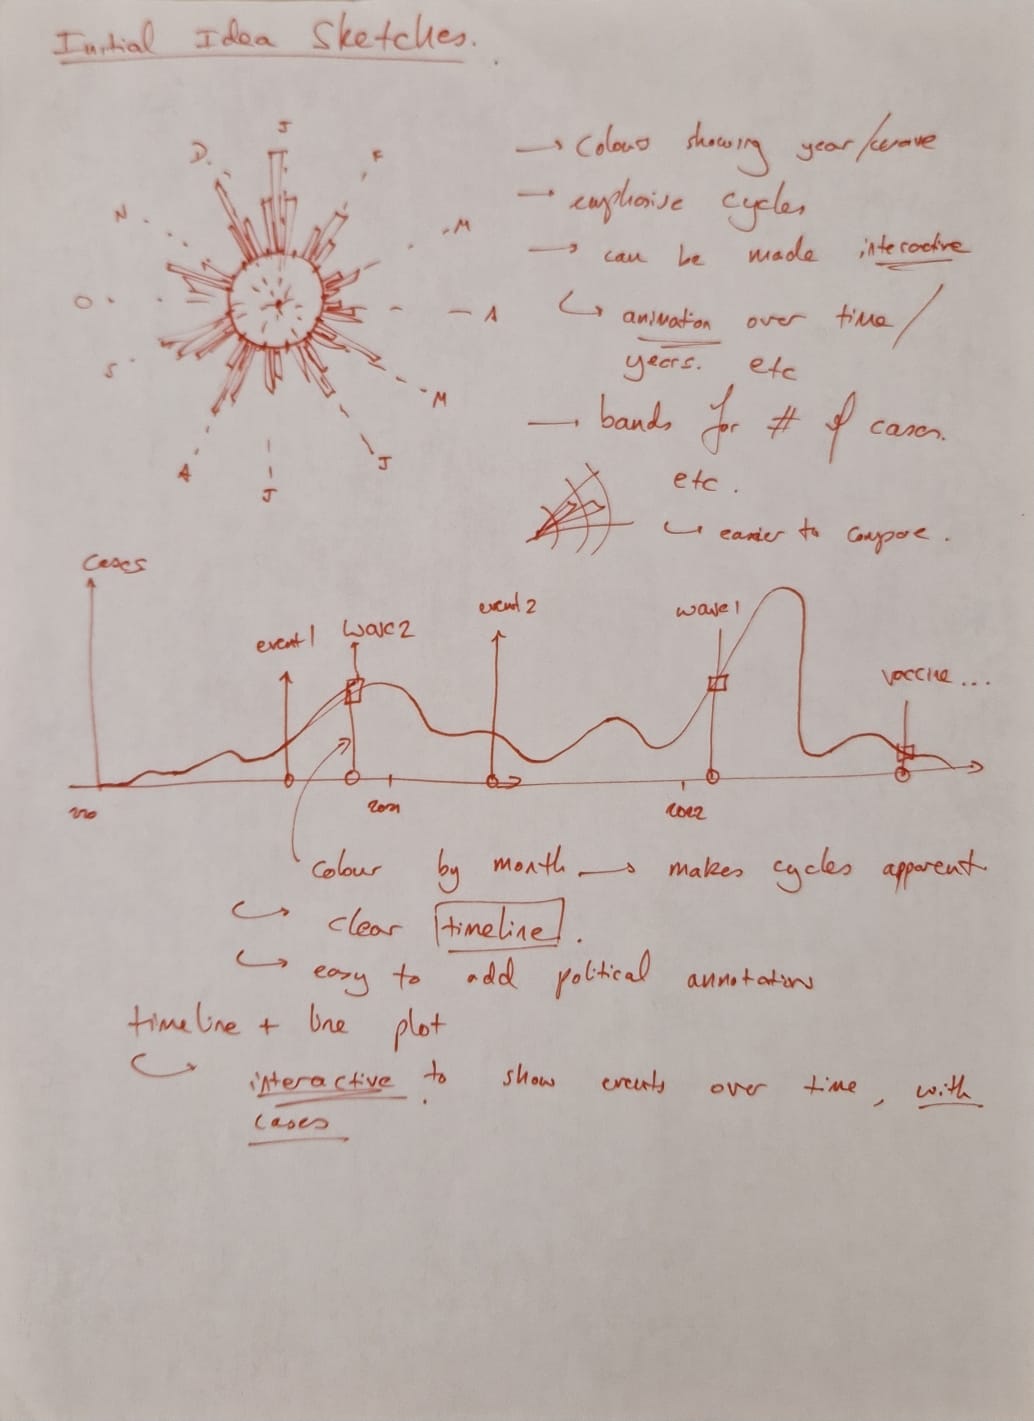 Initial Idea Sketches.
J
D
F
N
M
O
A
S
M
A
J
J
→ Colour showing year/wave
→ emphasise cycles
→ can be made interactive
↳ animation over time/
years. etc
→ bands for # of cases.
etc.
↳ easier to compare.
Cases
event 1
wave 2
event 2
wave 1
vaccine ...
2021
2022
colour by month → makes cycles apparent
↳ clear timeline.
↳ easy to add political annotations
timeline + line plot
↳ interactive to show events over time, with
cases